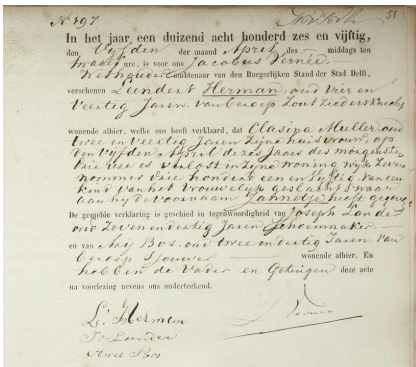 No 497
51
In het jaar, een duizend acht honderd zes en vijftig,
den Vyfden der maand April des middags ten
twaalf ure, is voor ons Jacobus Vernée
Wethouder ambtenaar van den Burgerlijken Stand der Stad Delft,
verschenen Leendert Herman, oud vier en
veertig Jaren, van beroep Zoutziedersknecht
wonende alhier, welke ons heeft verklaard, dat Clasina Muller, oud
twee en veertig Jaren zyne huisvrouw, op
den Vyfden April dezes Jaars des morgens ten
drie ure is verlost in zyne woning wyk Zeven
nommer vier honderd een en vyftig van een
kind van het vrouwelyk geslacht, waar
aan hy de voornaam Jannetje heeft gegeven
De gemelde verklaring is geschied in tegenwoordigheid van Joseph Lander
oud Zeven en dertig Jaren Schoenmaker
en van Arij Bos, oud twee en dertig Jaren, van
beroep Sjouwer wonende alhier. En
hebben de Vader en Getuigen deze acte
na voorlezing nevens ons onderteekend.
L: Herman
J: Lander
Arie Bos
J Vernée